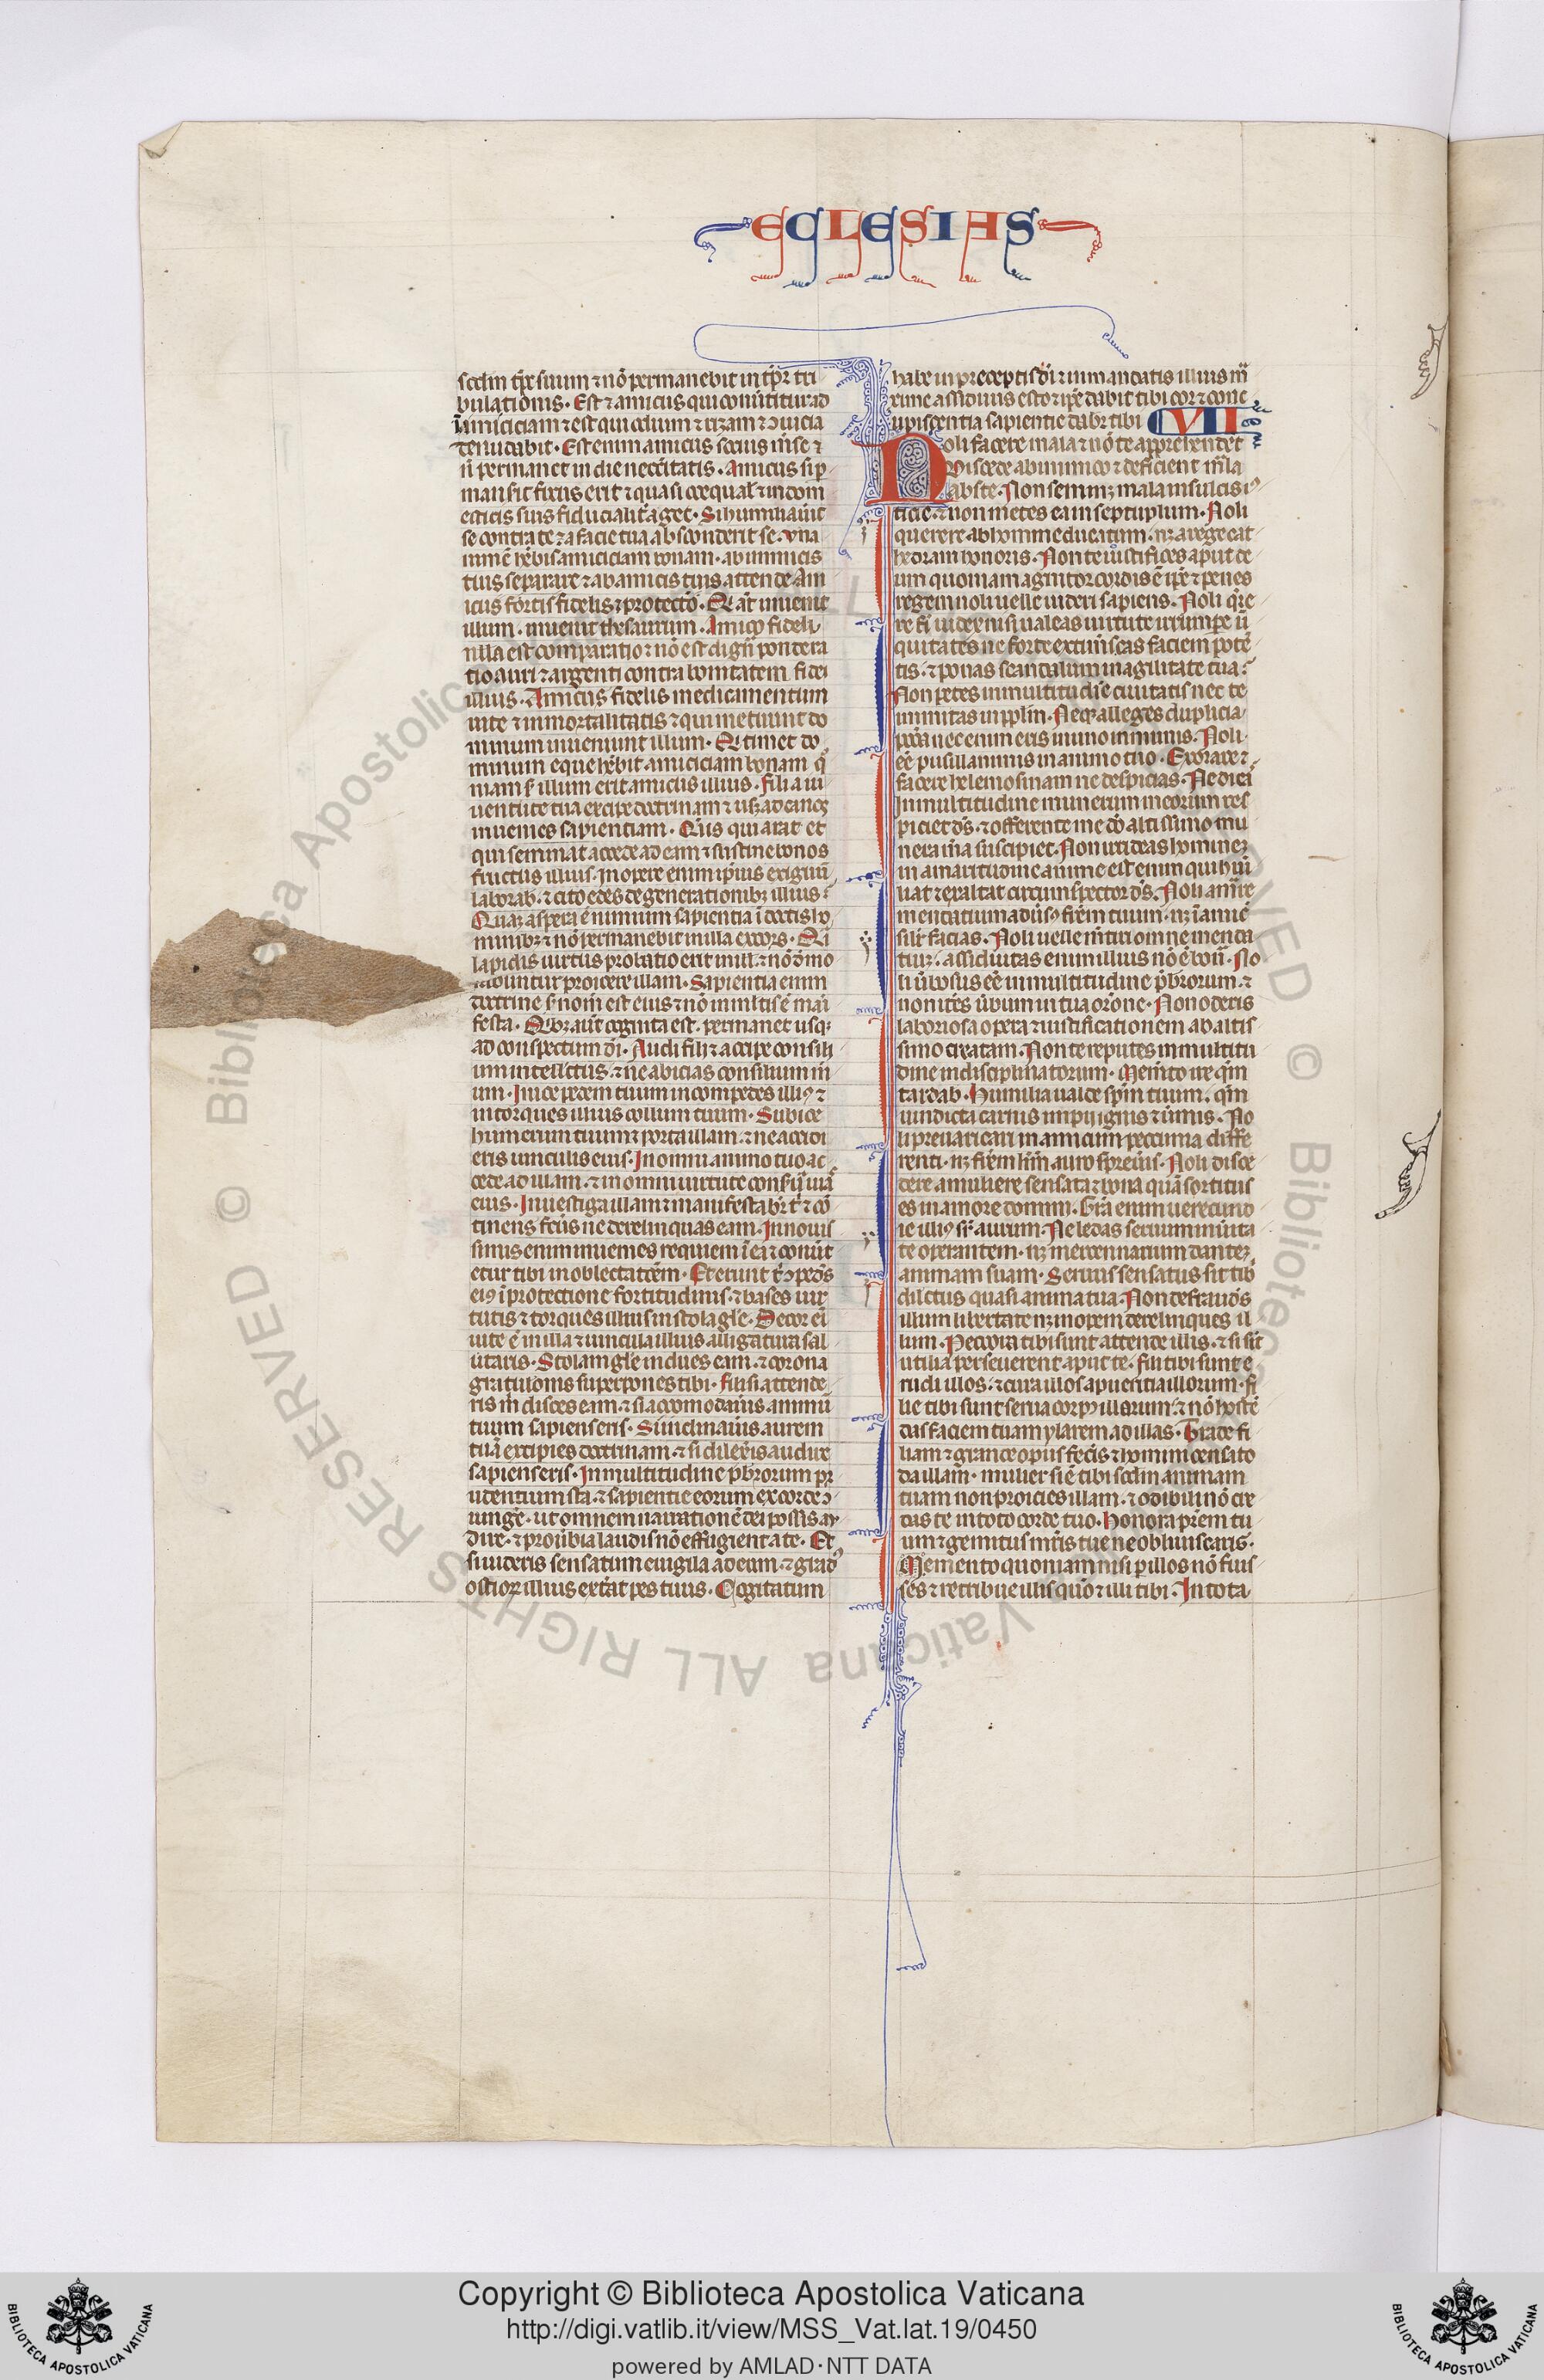 ECCLESIAS
scdm tp̄r suum ⁊ nō permanebit in tp̄r tri
bulationis. Est ⁊ amicus qui conuertitur ad
inimiciciam ⁊ est qui odium ⁊ rixam ⁊ ɔuicia
denudabit. Est enim amicus socius mēse ⁊
n̄ permanet in die necc̄itatis. Amicus si p̄
manserit fixus erit ⁊ quasi coequal̄ ⁊ in dom
esticis suis fiducialit̄ aget. Si humiliauit
se contra te ⁊ a facie tua absconderit se. vna
nimē hēbis amiciciam bonam. ab inimicis
tuis separare ⁊ ab amicis tuis attende. Am
icus fortis fidelis ⁊ protectō. Q̄ aūt inuenit
illum. inuenit thesaurum. Amico fideli
nulla est comparatio ⁊ nō est dign̄ pondera
tio auri ⁊ argenti contra bonitatem fidei
illius. Amicus fidelis medicamentum
uite ⁊ inmortalitatis ⁊ qui metuunt do
minum inuenient illum. Q̄ timet do
minum eque hēbit amiciciam bonam q̄
niam s̄ illum erit amicus illius. fili a iu
uentute tua excipe doctrinam ⁊ usq̄ ad canos
inuenies sapientiam. Quasi qui arat et
qui seminat accede ad eam ⁊ sustine bonos
fructus illius. In opere enim ipsius exiguū
laborab. ⁊ cito edes de generationibꝫ illius.
Quaꝫ aspera ē nimium sapientia ī doctis ho
minibꝫ ⁊ nō permanebit in illa excors. Q̄i
lapidis uirtus probatio erit in ill. ⁊ nō demo
rabuntur proicere illam. Sapientia enim
doctrine s̄ nom̄ est eius ⁊ nō in multis ē mani
festa. Quibꝫ aūt cognita est. permanet usq̄
ad conspectum dī. Audi fili ⁊ accipe consili
um intellectus. ⁊ ne abicias consilium m̄
um. Inice pedem tuum in compedes illiꝰ ⁊
in torques illius collum tuum. Subice
humerum tuum ⁊ porta illam. ⁊ ne acedi
eris uinculis eius. In omni animo tuo ac
cede ad illam. ⁊ in omni uirtute conserua uiā
eius. Inuestiga illam ⁊ manifestabit̄ t̄ ⁊ cō
tinens fc̄us ne derelinquas eam. In nouis
simis enim inuenies requiem ī ea ⁊ conūt
etur tibi in oblectatiōem. Et erunt t̄ ɔpedes
eiꝰ ī protectione fortitudinis. ⁊ bases uir
tutis ⁊ torques illius in stola gl̄e. Decor ei
uite ē in illa ⁊ uincula illius alligatura sal
utaris. Stolam gl̄e indues eam. ⁊ corona
gratulōnis superpones tibi. fili si attende
ris m̄ disces eam. ⁊ si accomodaūis animū
tuum sapiens eris. Si inclinaūis aurem
tuā excipies doctrinam. ⁊ si dilexeris audire
sapiens eris. In multitudine pb̄rorum pr
udentium sta. ⁊ sapientie eorum ex corde ɔ
iunge. ut omnem narrationē dei possis au
dire. ⁊ prouerbia laudis nō effugient a te. Et
si uideris sensatum euigila ad eum. ⁊ gradꝰ
ostiorꝫ illius exterat pes tuus. Cogitatum
habe in preceptis dī ⁊ in mandatis illius m̄
xime assiduus esto ⁊ ip̄e dabit tibi cor ⁊ conc
upiscentia sapientie dabit̄ tibi VII
Noli facere mala ⁊ nō te apprehendet
Discede ab iniquo ⁊ deficient mala
abs te. Non semines mala in sulcis iꝰ
ticie. ⁊ non metes ea in septuplum. Noli
querere ab homine ducatum. nꝫ a rege cat
hedram honoris. Non te iustifices aput de
um quoniam agnitor cordis ē ip̄e ⁊ penes
regem noli uelle uideri sapiens. Noli quere
re fi iudex nisi ualeas uirtute irrumpe in
quitates ne forte extimescas faciem potē
tis. ⁊ ponas scandalum in agilitate tua.
Non petes in multitudie ciuitatis nec te
inmittas in pplm. Neqꝫ alleges duplicia
pccā nec enim eris in uno inmunis. Noli
eē pusillanimis in animo tuo. Exorare ⁊
facere helemosinam ne despicias. Ne dicas
In multitudine munerum meorum res
piciet d̄s. ⁊ offerente me dō altissimo mu
nera mea suscipiet. Non irrideas hominem
in amaritudine anime est enim qui humi
liat ⁊ exaltat circumspector d̄s. Noli amare
mendatium aduersꝰ frēm tuum. nꝫ ī amicū
simil̄r facias. Noli uelle mentiri omne menda
tium. assiduitas enim illius nō ē bona. No
li uerbosus eē in multitudine pb̄rorum. ⁊
non iteres uerbum in tua orōne. Non oderis
laboriosa opera ⁊ rusticationem ab altis
simo creatam. Non te reputes in multitu
dine indisciplinatorum. Memento ire qm̄
tardab. Humilia ualde spm̄ tuum. qm̄
uindicta carnis impij ignis ⁊ uermis. No
li preuaricari in amicum peccunia diffe
renti. nꝫ frēm kr̄m auro spreueris. Noli disce
dere a muliere sensata ⁊ bona quā sortitus
es in amore domini. Grā enim uerecund
ie illiꝰ sr̄ aurum. Ne ledas seruum in uerita
te operantem. nꝫ mercennarium dantem
animam suam. Seruus sensatus sit tib
dilctus quasi anima tua. Non defraudes
illum libertate nꝫ inopem derelinques il
lum. Peccora tibi sunt attende illis. ⁊ si sūt
utilia perseuerent aput te. Filii tibi sunt e
rudi illos. ⁊ cura illos a pueritia illorum. fi
lie tibi sunt serua corpꝰ illarum. ⁊ nō hoste
das faciem tuam ylarem ad illas. Trade fi
liam ⁊ grande opus fecis ⁊ homini censato
da illam. mulier si ē tibi scdm animam
tuam non proicies illam. ⁊ odibili nō cre
das te in toto corde tuo. Honora prēm tu
um ⁊ gemitus mr̄is tue ne obliuiscaris.
Memento quoniam nisi p illos nō fuis
ses ⁊ retribue illis quō ⁊ illi tibi. In tota
© Biblioteca Apostolica Vaticana ALL RIGHTS RESERVED © Biblioteca Apostolica Vaticana ALL RIGHTS RESERVED
Copyright © Biblioteca Apostolica Vaticana
http://digi.vatlib.it/view/MSS_Vat.lat.19/0450
powered by AMLAD·NTT DATA
BIBLIOTECA APOSTOLICA VATICANA
BIBLIOTECA APOSTOLICA VATICANA